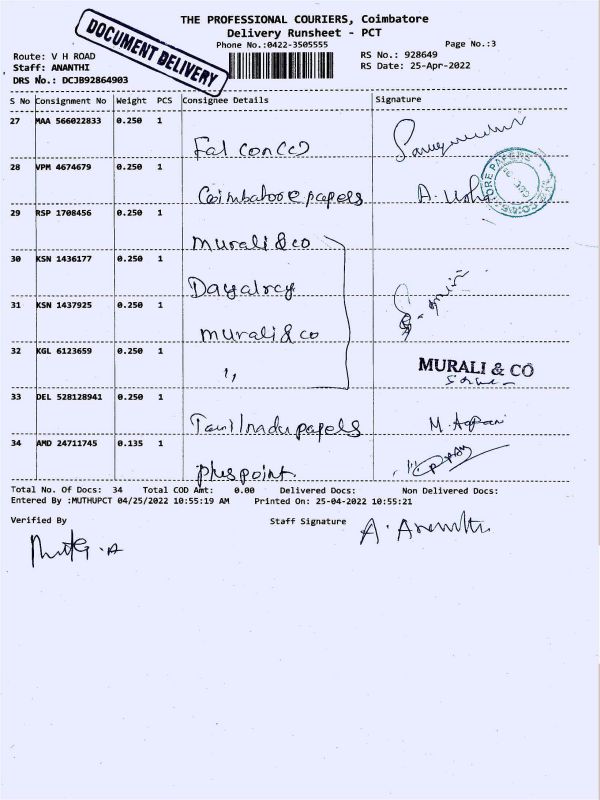 THE PROFESSIONAL COURIERS, Coimbatore
Delivery Runsheet - PCT
DOCUMENT DELIVERY
Phone No.:0422-3505555 Page No.:3
Route: V H ROAD RS No.: 928649
Staff: ANANTHI RS Date: 25-Apr-2022
DRS No.: DCJB92864903
S No Consignment No Weight PCS Consignee Details Signature
27 MAA 566022833 0.250 1
Falcon (CJ)
28 VPM 4674679 0.250 1
Coimbatore papers A. Usha
29 RSP 1708456 0.250 1
Murali & co
30 KSN 1436177 0.250 1
31 KSN 1437925 0.250 1
Murali & co
32 KGL 6123659 0.250 1
,,
MURALI & CO
33 DEL 528128941 0.250 1
Tamilnadu papers
34 AMD 24711745 0.135 1
plus point
Total No. Of Docs: 34 Total COD Amt: 0.00 Delivered Docs: Non Delivered Docs:
Entered By :MUTHUPCT 04/25/2022 10:55:19 AM Printed On: 25-04-2022 10:55:21
Verified By Staff Signature